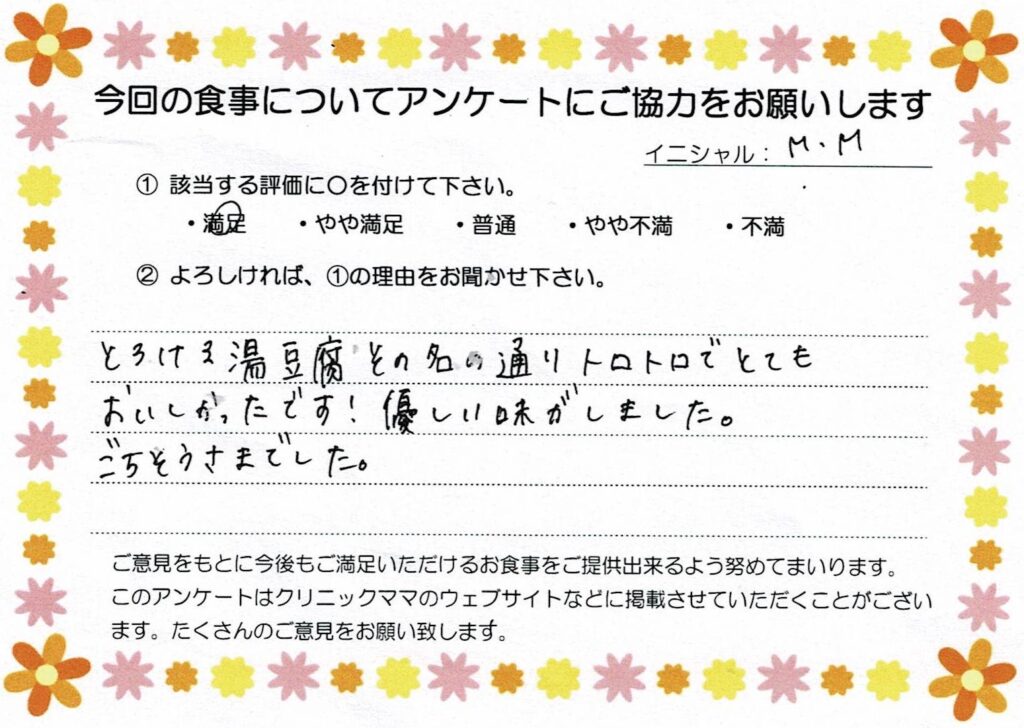 今回の食事についてアンケートにご協力をお願いします
イニシャル： M.M
① 該当する評価に〇を付けて下さい。
・満足 ・やや満足 ・普通 ・やや不満 ・不満
② よろしければ、①の理由をお聞かせ下さい。
とろける湯豆腐その名の通りトロトロでとても
おいしかったです！優しい味がしました。
ごちそうさまでした。
ご意見をもとに今後もご満足いただけるお食事をご提供出来るよう努めてまいります。
このアンケートはクリニックママのウェブサイトなどに掲載させていただくことがござい
ます。たくさんのご意見をお願い致します。